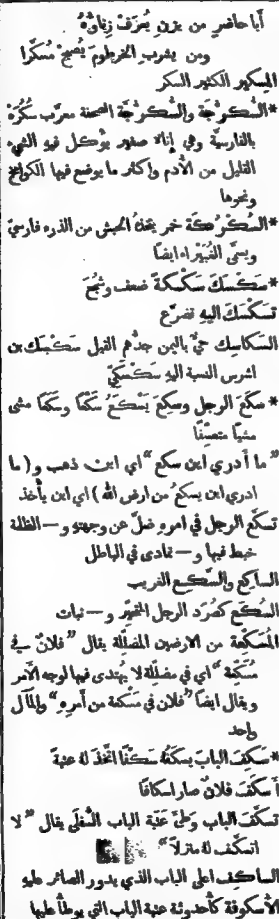 أبا حاضر من يزن يُعرَف زناؤهُ
ومن يشرب الخرطومَ يُصبح مُسكَرا
السكير الكثير السكر
*السُكُرْجَة والسُكُرُّجَة الصحفة معرَّب سكُرَّهْ
بالفارسيَّة وهي إناءٌ صغير يؤكل فيهِ الشيء
القليل من الأدم وأكثر ما يوضع فيها الكوامخ
ونحوها
*السُكُرْكَة خمر يتخذهُ الحبش من الذرة فارسيّ
ويسمَّى الغُبَيْراء ايضًا
*سَكْسَكَ سَكْسَكَةً ضعف وشجُعَ
تسَكْسَكَ اليهِ تضرَّع
السَكاسِك حيٌّ باليمن جدُّهم القيل سَكْسَك بن
اشرس النسبة اليهِ سَكْسَكيّ
*سَكَعَ الرجل وسكِعَ يَسْكَعُ سَكْعًا وسَكَعًا مشى
مشيًا متعسِّفًا
"ما أدري اين سكع" اي اين ذهب و(ما
ادري اين يسكعُ من ارض الله) اي اين يأخذ
تسكَّع الرجل في امرهِ ضلَّ عن وجهتهِ و— الظلمة
خبط فيها و— تمادى في الباطل
الساكِع والسَكِع الغريب
السُكَع كصُرَد الرجل المتحيّر و— نبات
المُسَكِّعة من الارضين المضلِّلة يقال "فلانٌ في
مُسَكِّعة" اي في مضلِّلة لا يُهتدى فيها لوجه الأمر
ويقال ايضًا "فلان في مُسْكَعة من أمرهِ" والمآل
واحد
*سَكَفَ البابَ يسكُفهُ سَكْفًا اتَّخذ لهُ عتبة
أسكَفَ فلانٌ صار اسكافًا
تسَكَّفَ الباب وطئَ عَتَبة الباب السُفلَى يقال "لا
اتسكَّف لهُ منزلاً"
الساكِف اعلى الباب الذي يدور الصائر عليهِ
الأُسكوفة كأُحدوثة عتبة الباب التي يوطأ عليها